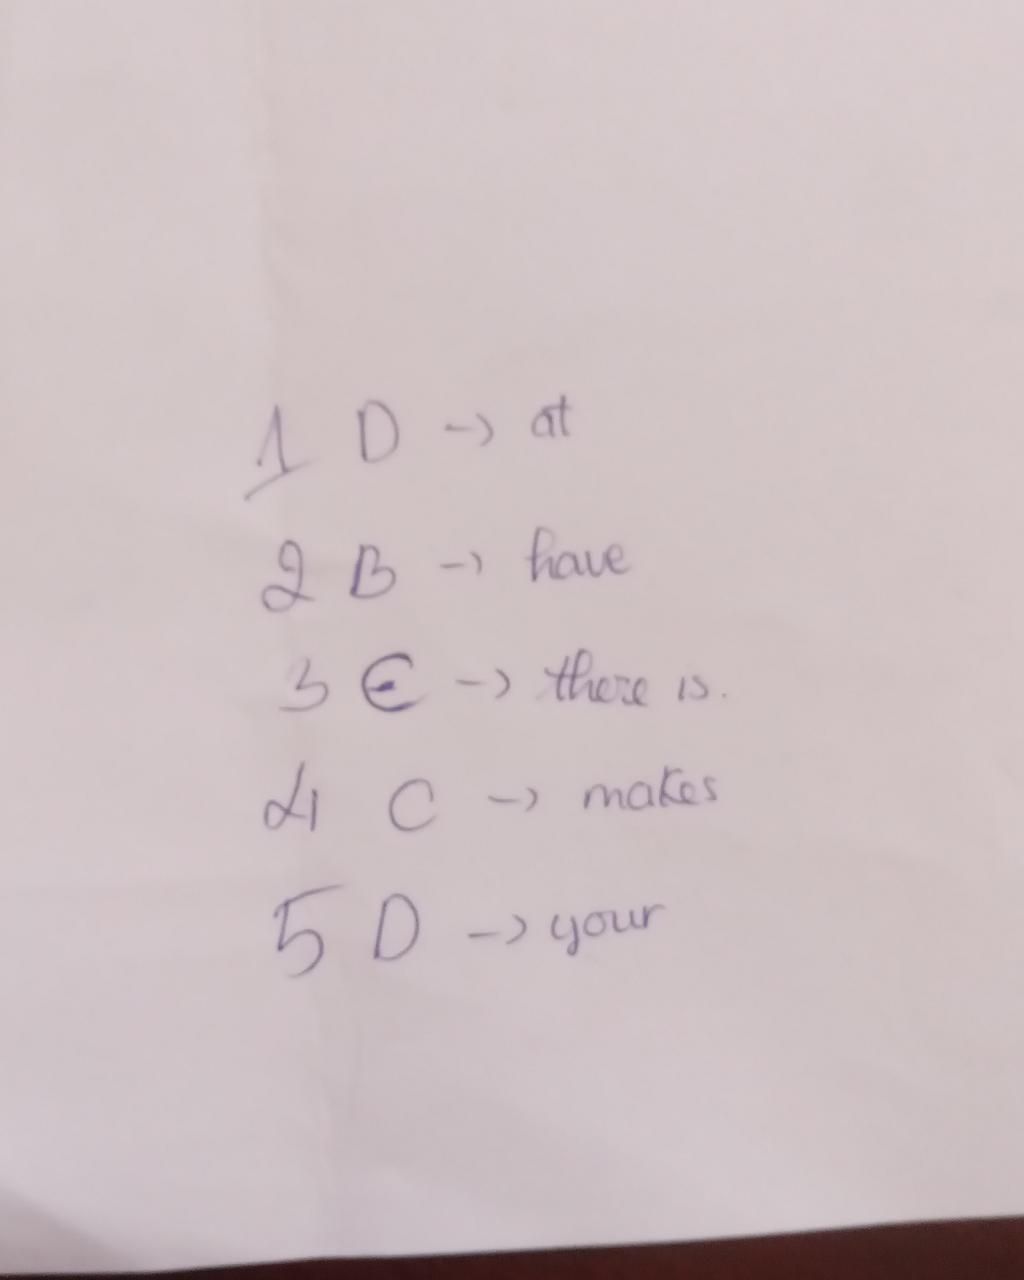 1 D -> at
2 B -> have
3 E -> there is.
4 C -> makes
5 D -> your